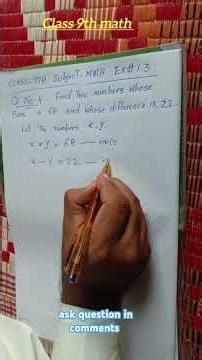 Class 9th math
CLASS: 9TH Subject MATH Ex# 1.3
Q No 4 Find Two numbers whose
Sum is 68 and whose difference is 22.
Let the numbers x, y
x + y = 68
x - y = 22
ask question in
comments